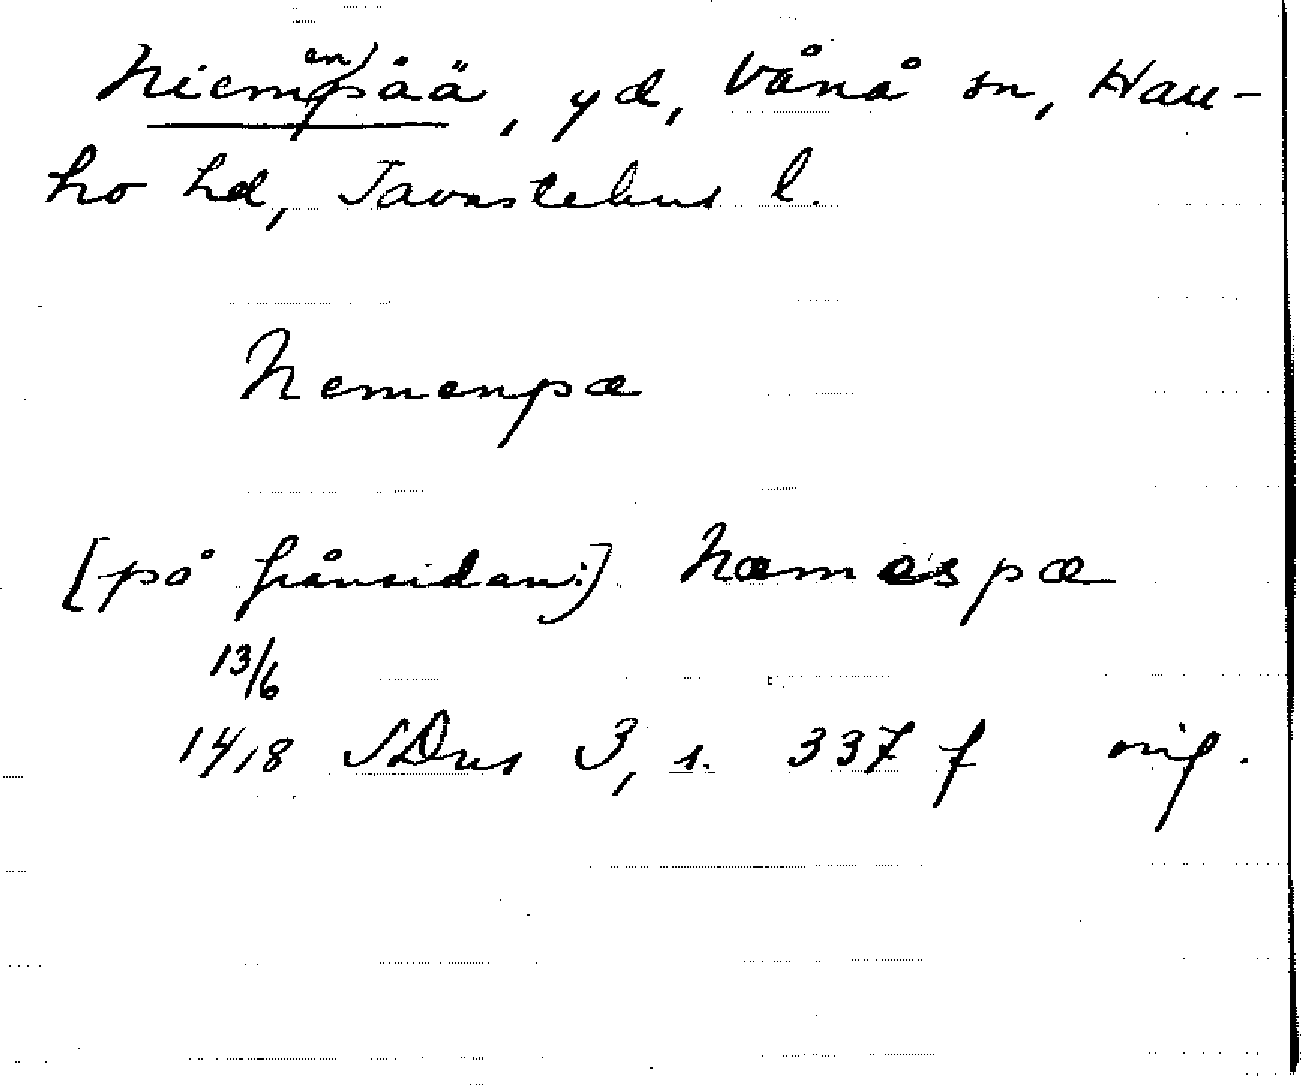 Niemenpåä, yd, Vånå sn, Hau-
ho hd, Tavastehus l.
Nemenpæ
[på frånsidan:] Næmespæ
13/6
1418 SDns 3, s. 337 f orig.